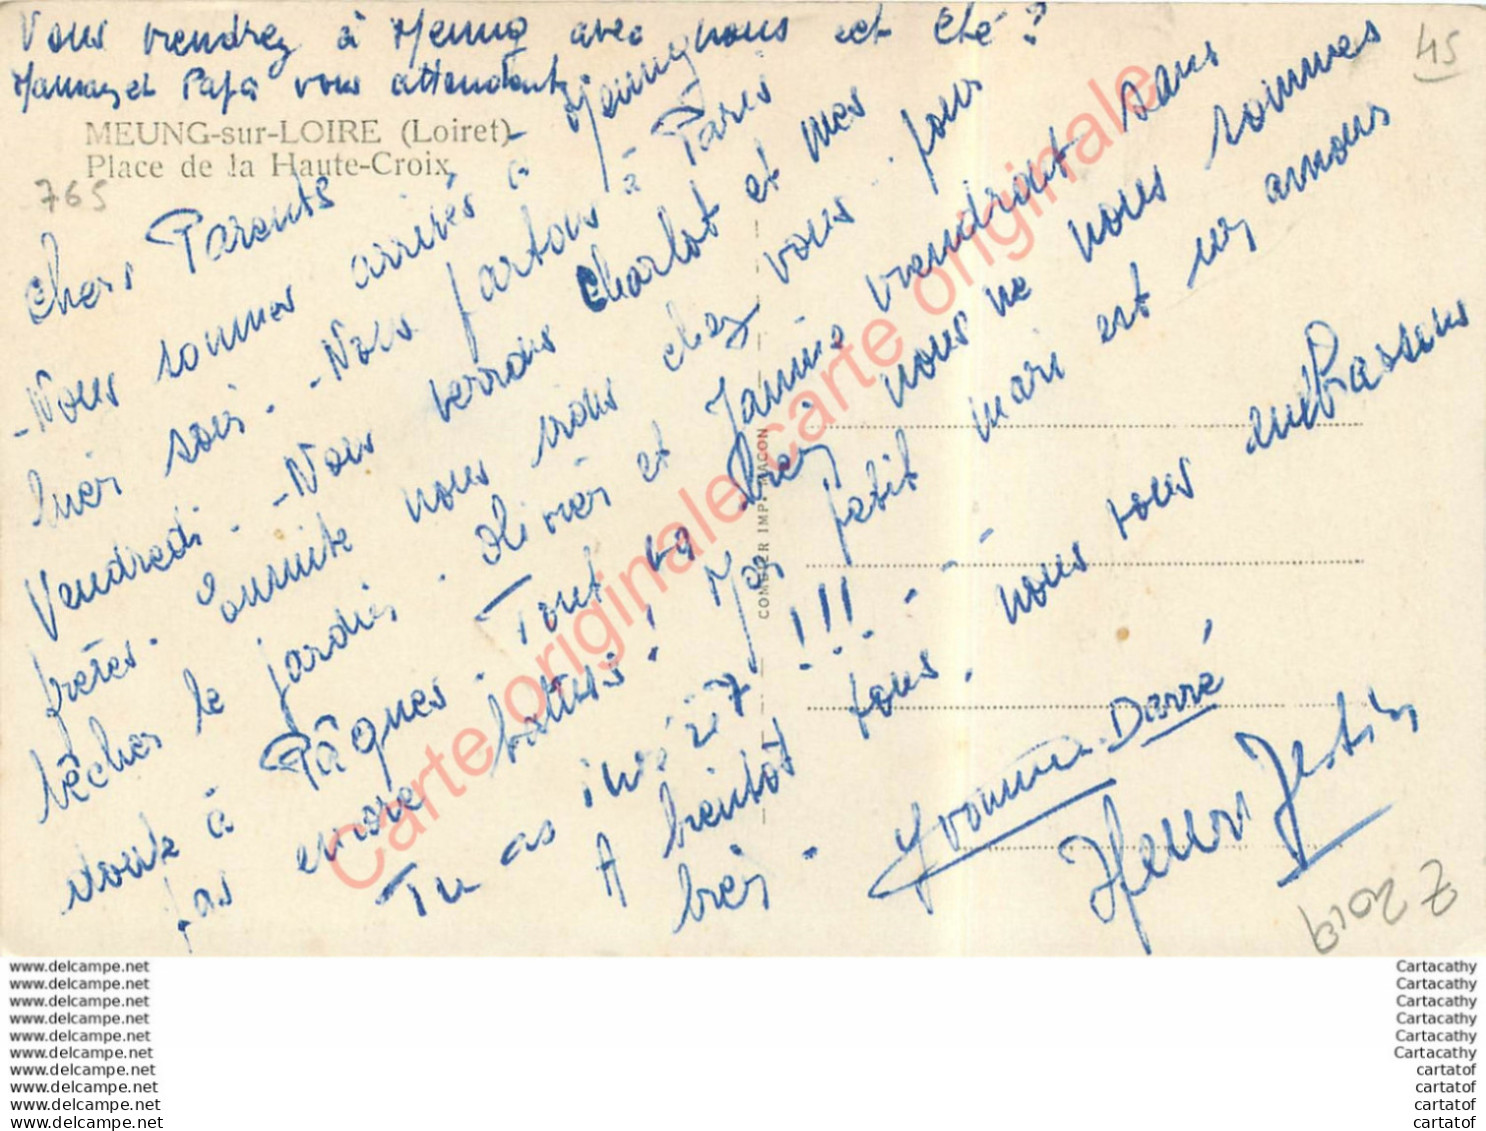 Vous viendrez à Meung avec nous cet été ?
Maman et Papa vous attendent
MEUNG-sur-LOIRE (Loiret)
Place de la Haute-Croix
765
45
Chers Parents
- Nous sommes arrivés à Meung
hier soir. - Nous partons à Paris
Vendredi. - Nous verrons Charlot et mes
frères. Ensuite nous irons chez vous pour
bêcher le jardin. Olivier et Janine viendront sans
doute à Pâques. Tout va bien, nous ne nous sommes
pas encore battus ! Mon petit mari est un amour
Tu as !!!
A bientôt tous, nous vous embrassons
bien.
Yvonne Darré
Henri Jestin
COMBIER IMP. MACON
Z 2019
Carte originale carte originale
www.delcampe.net
www.delcampe.net
www.delcampe.net
www.delcampe.net
www.delcampe.net
www.delcampe.net
www.delcampe.net
www.delcampe.net
www.delcampe.net
www.delcampe.net
Cartacathy
Cartacathy
Cartacathy
Cartacathy
Cartacathy
Cartacathy
cartatof
cartatof
cartatof
cartatof